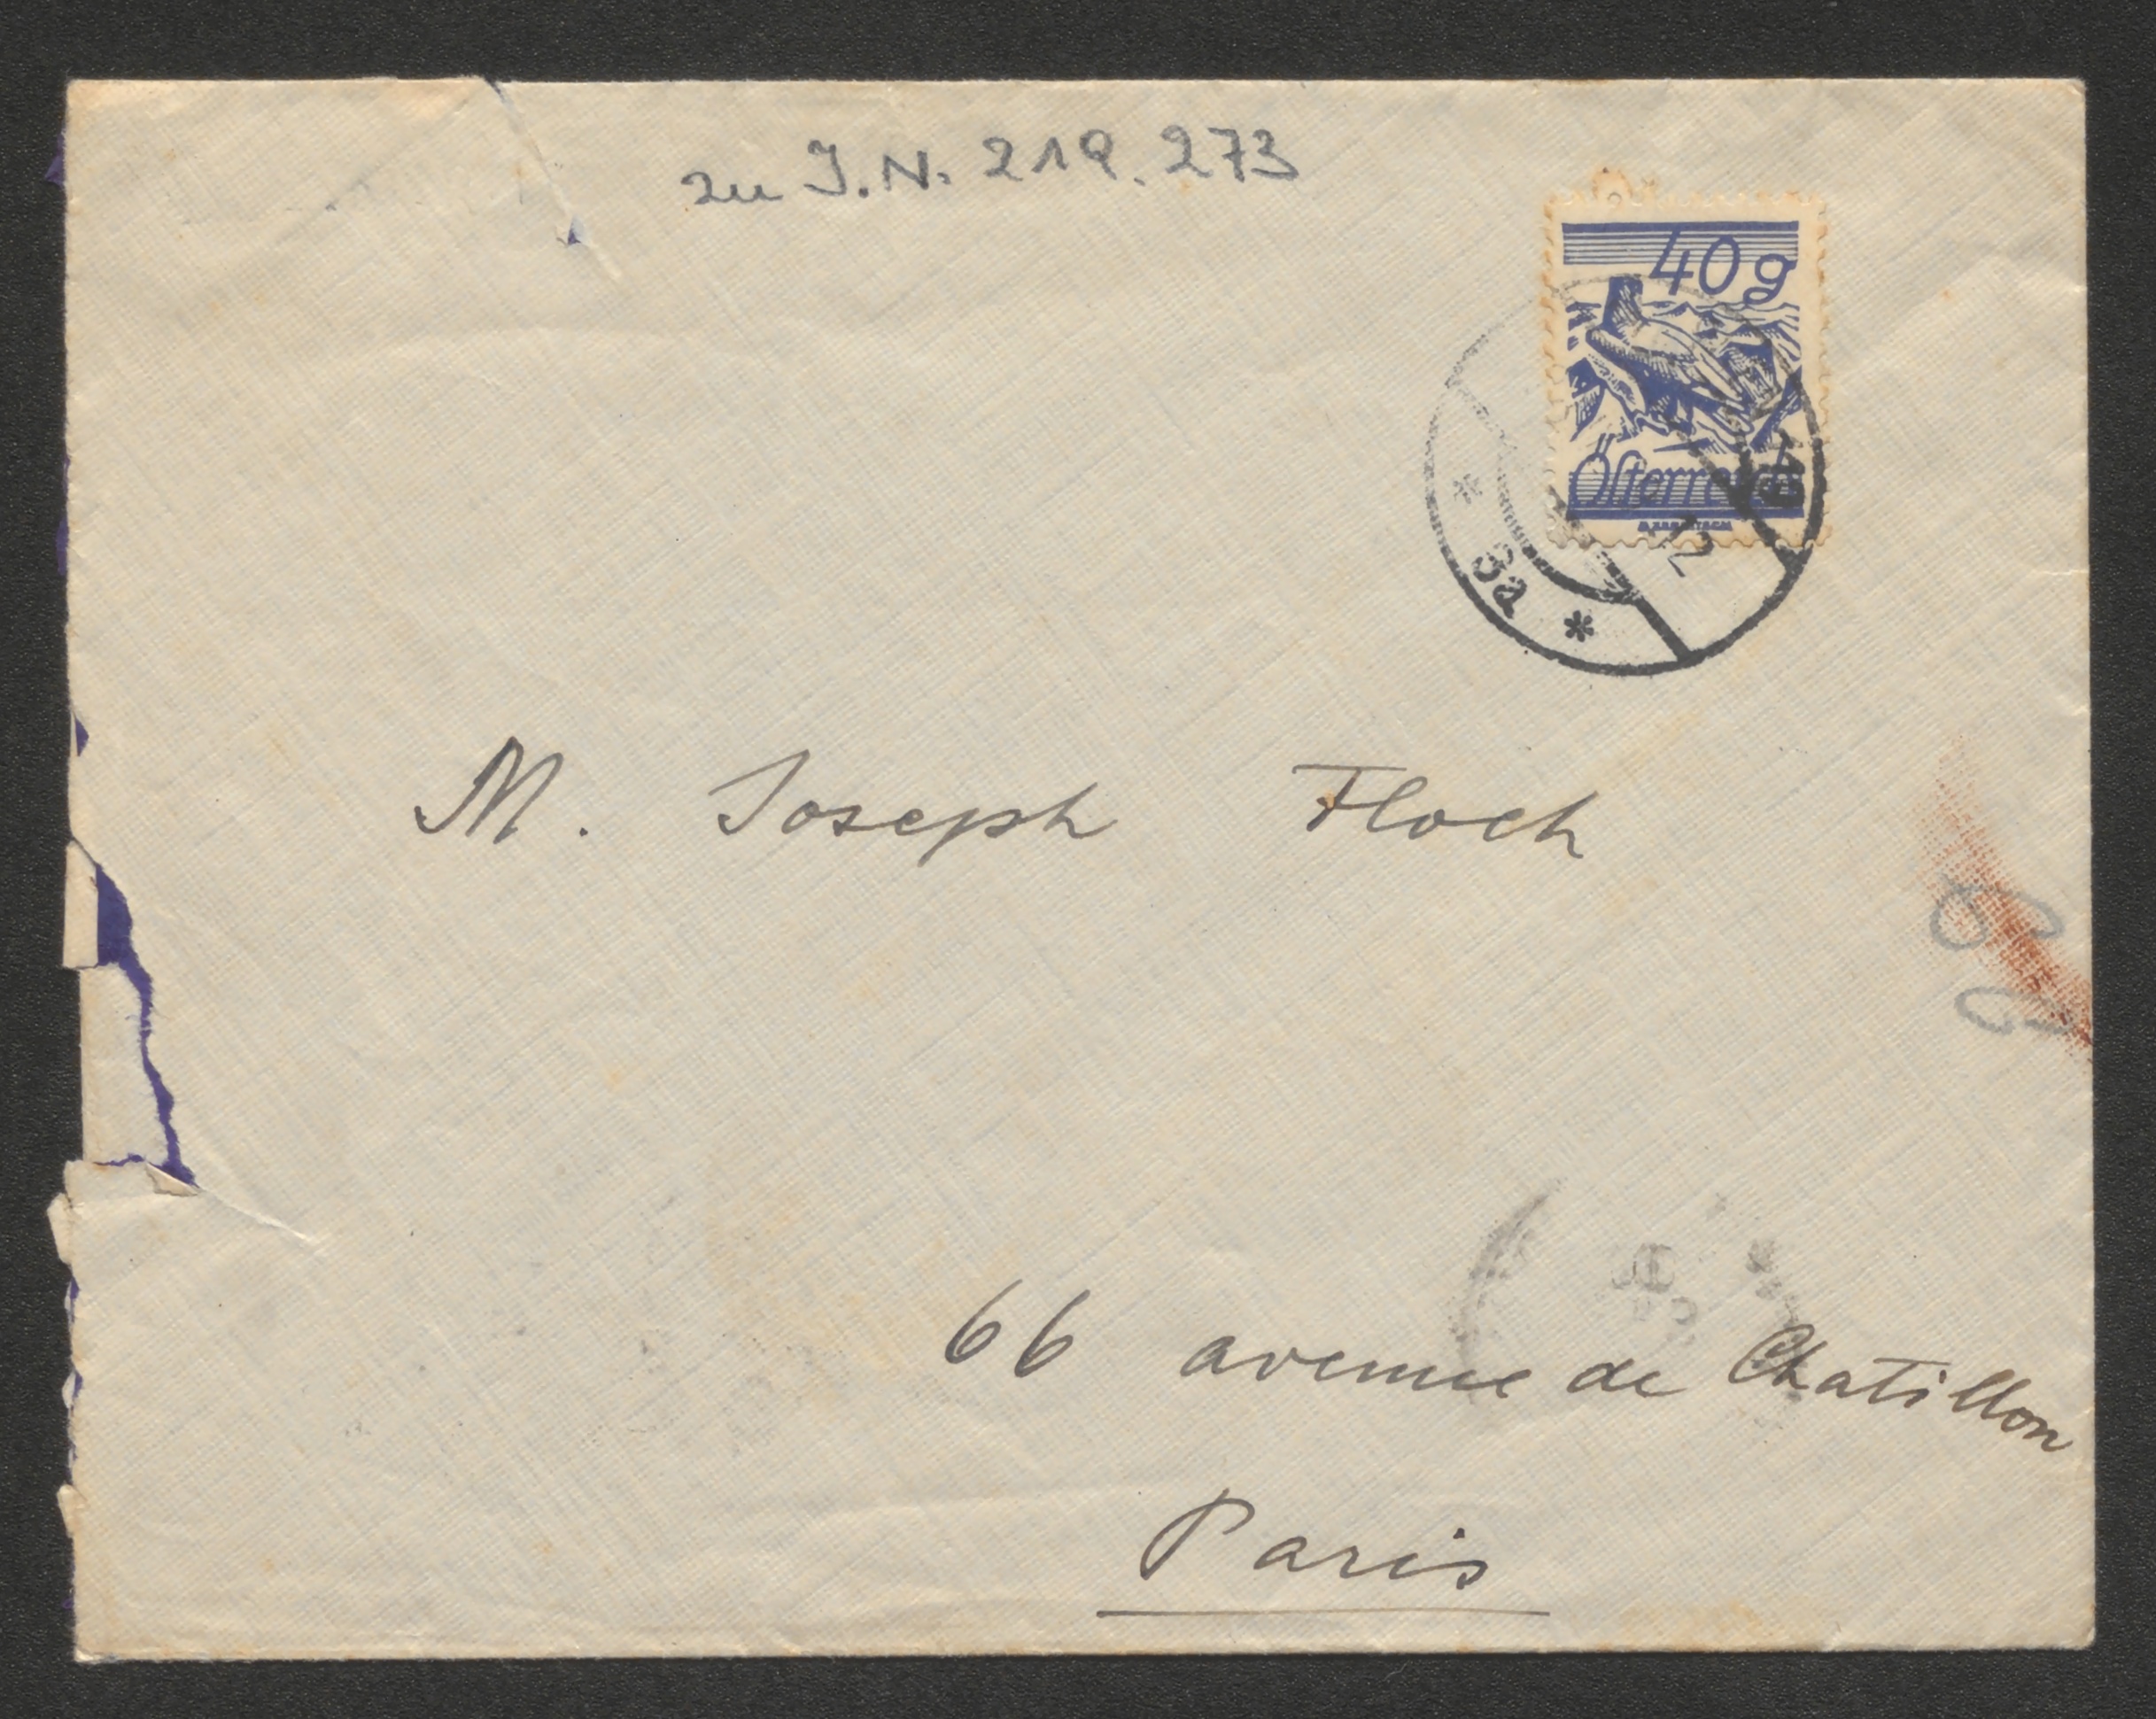 zu I.N. 219.273
40g
Österreich
3a
M. Joseph Floch
66 avenue de Chatillon
Paris